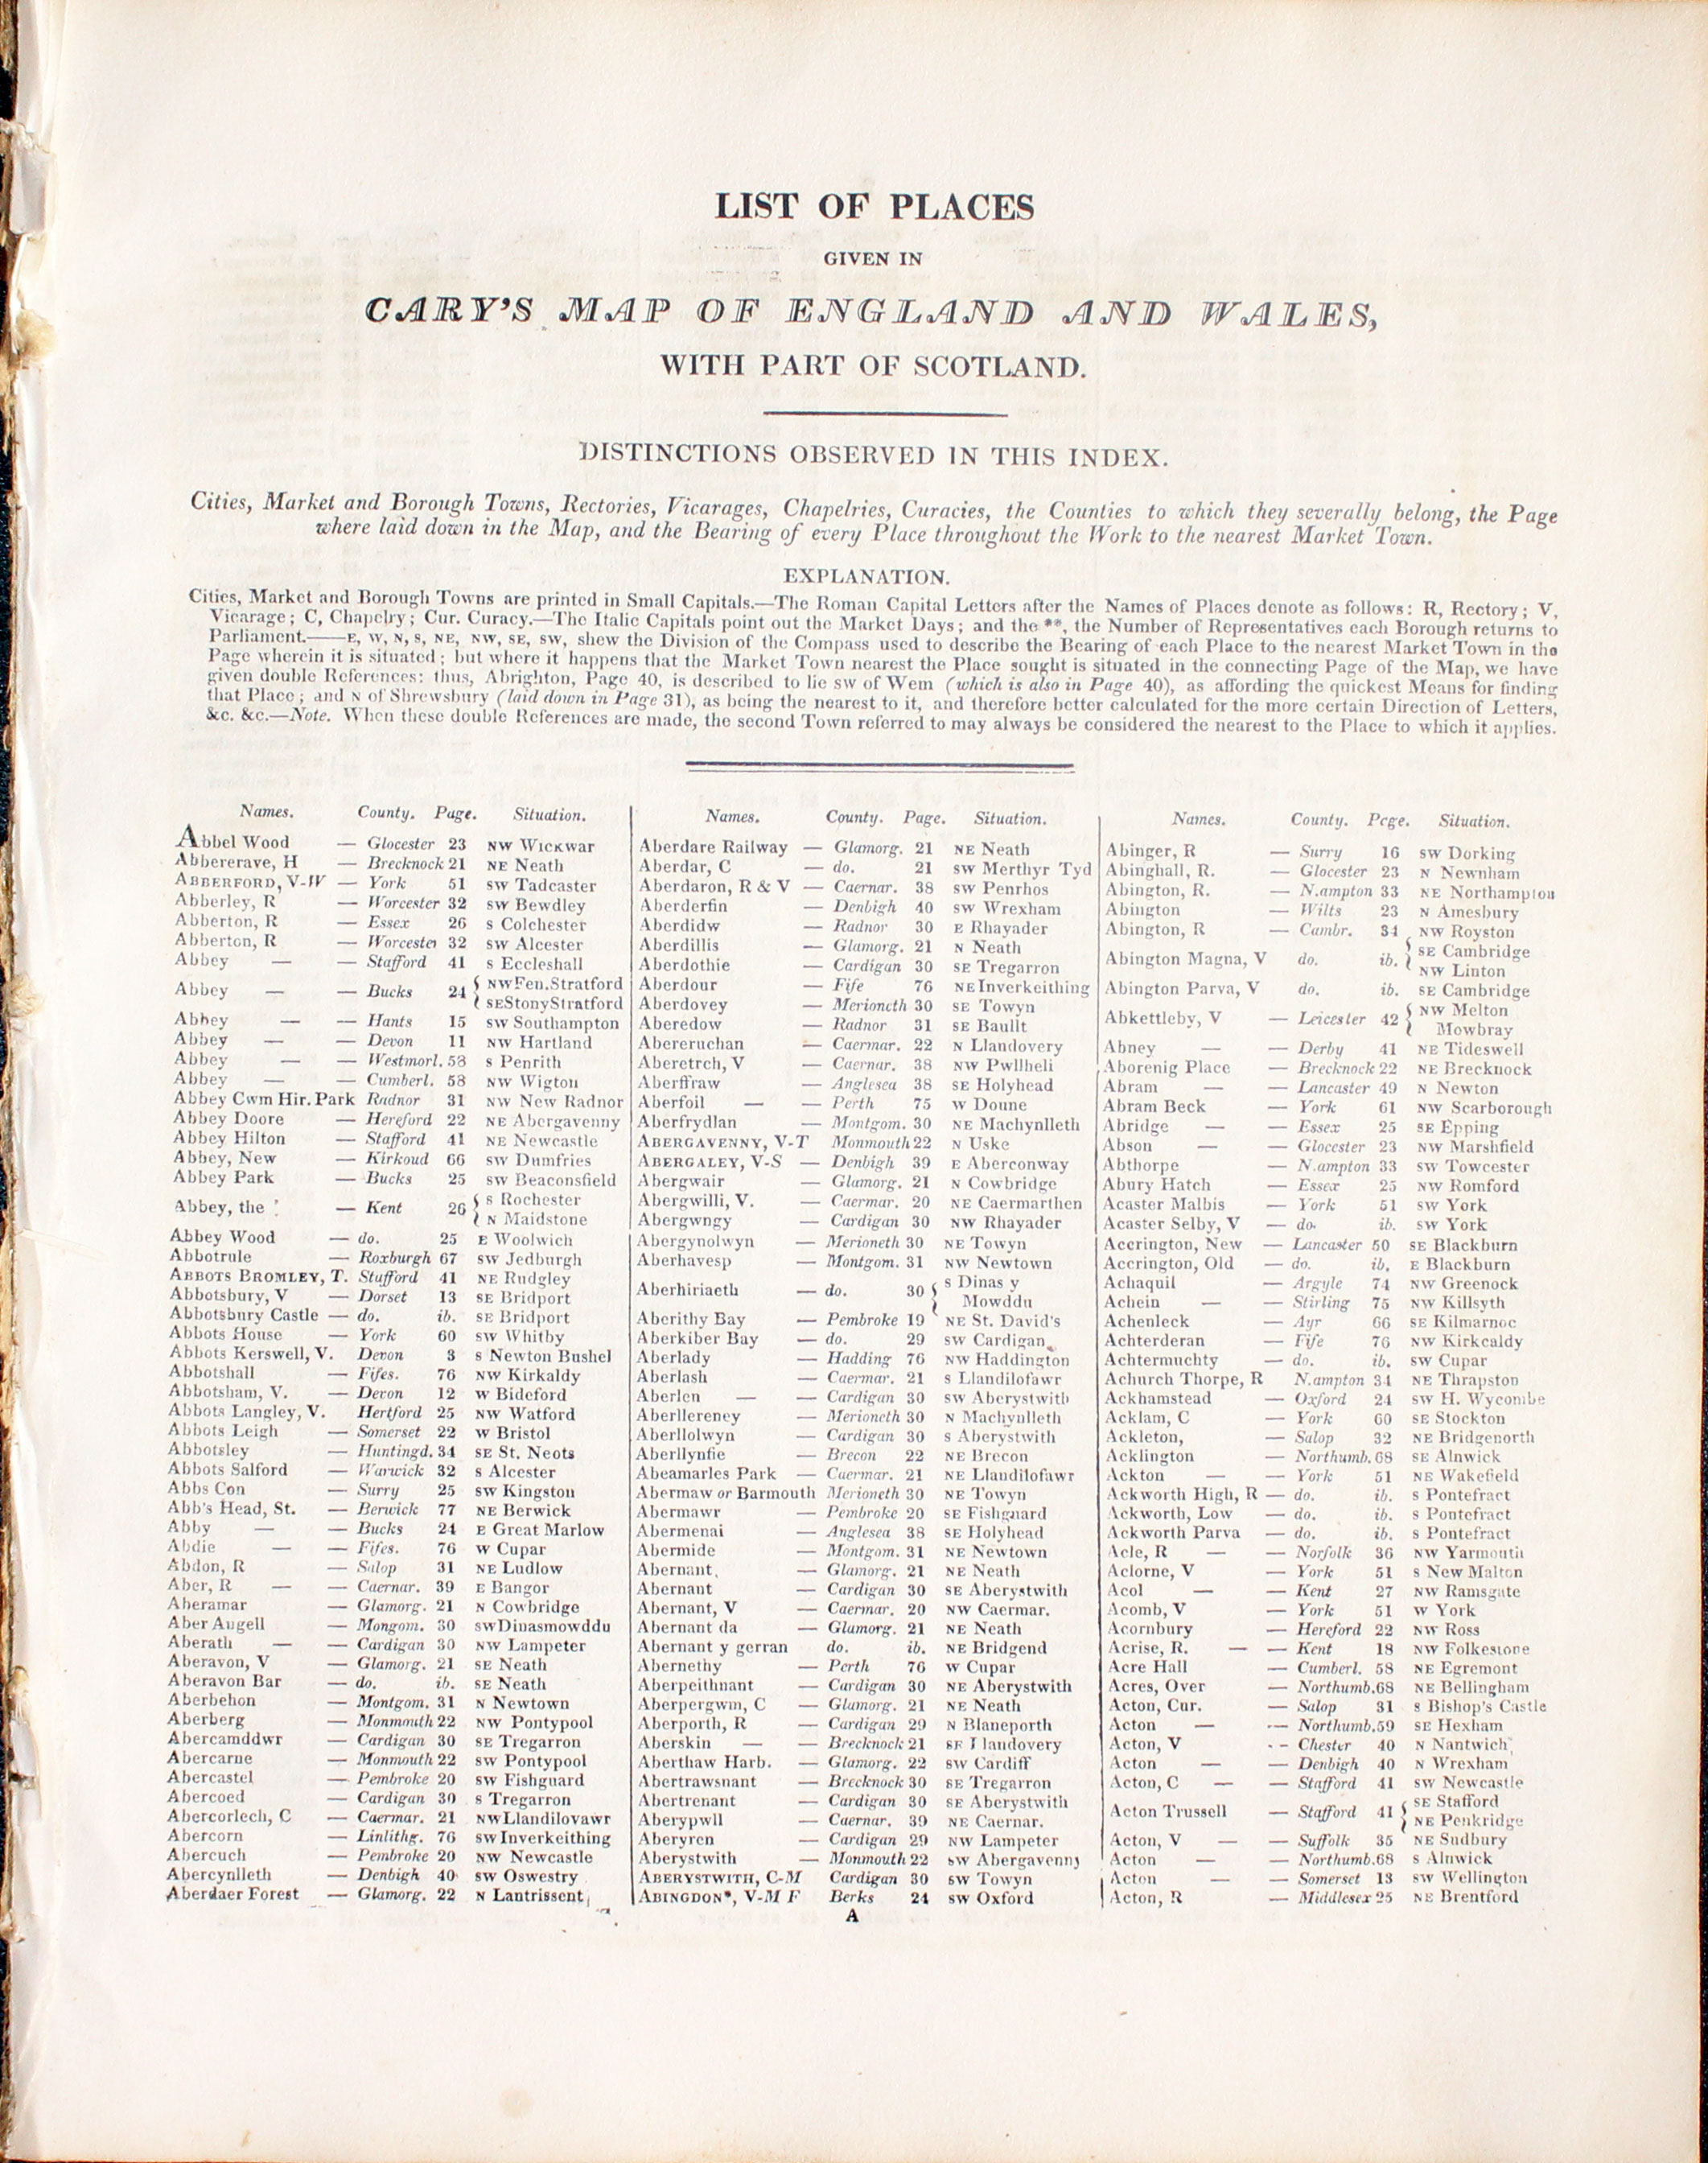 LIST OF PLACES
GIVEN IN
CARY'S MAP OF ENGLAND AND WALES,
WITH PART OF SCOTLAND.
DISTINCTIONS OBSERVED IN THIS INDEX.
Cities, Market and Borough Towns, Rectories, Vicarages, Chapelries, Curacies, the Counties to which they severally belong, the Page
where laid down in the Map, and the Bearing of every Place throughout the Work to the nearest Market Town.
EXPLANATION.
Cities, Market and Borough Towns are printed in Small Capitals.—The Roman Capital Letters after the Names of Places denote as follows: R, Rectory; V,
Vicarage; C, Chapelry; Cur. Curacy.—The Italic Capitals point out the Market Days; and the **, the Number of Representatives each Borough returns to
Parliament.——E, W, N, S, NE, NW, SE, SW, shew the Division of the Compass used to describe the Bearing of each Place to the nearest Market Town in the
Page wherein it is situated; but where it happens that the Market Town nearest the Place sought is situated in the connecting Page of the Map, we have
given double References: thus, Abrighton, Page 40, is described to lie SW of Wem (which is also in Page 40), as affording the quickest Means for finding
that Place; and N of Shrewsbury (laid down in Page 31), as being the nearest to it, and therefore better calculated for the more certain Direction of Letters,
&c. &c.—Note. When these double References are made, the second Town referred to may always be considered the nearest to the Place to which it applies.
Names. County. Page. Situation.
Abbel Wood — Glocester 23 NW Wickwar
Abbererave, H — Brecknock 21 NE Neath
ABBERFORD, V-W — York 51 SW Tadcaster
Abberley, R — Worcester 32 SW Bewdley
Abberton, R — Essex 26 S Colchester
Abberton, R — Worcester 32 SW Alcester
Abbey — — Stafford 41 S Eccleshall
Abbey — — Bucks 24 { NW Fen. Stratford
{ SE Stony Stratford
Abbey — — Hants 15 SW Southampton
Abbey — — Devon 11 NW Hartland
Abbey — — Westmorl. 58 S Penrith
Abbey — — Cumberl. 58 NW Wigton
Abbey Cwm Hir. Park Radnor 31 NW New Radnor
Abbey Doore — Hereford 22 NE Abergavenny
Abbey Hilton — Stafford 41 NE Newcastle
Abbey, New — Kirkoud 66 SW Dumfries
Abbey Park — Bucks 25 SW Beaconsfield
Abbey, the — Kent 26 { S Rochester
{ N Maidstone
Abbey Wood — do. 25 E Woolwich
Abbotrule — Roxburgh 67 SW Jedburgh
ABBOTS BROMLEY, T. Stafford 41 NE Rudgley
Abbotsbury, V — Dorset 13 SE Bridport
Abbotsbury Castle — do. ib. SE Bridport
Abbots House — York 60 SW Whitby
Abbots Kerswell, V. Devon 3 S Newton Bushel
Abbotshall — Fifes. 76 NW Kirkaldy
Abbotsham, V. — Devon 12 W Bideford
Abbots Langley, V. Hertford 25 NW Watford
Abbots Leigh — Somerset 22 W Bristol
Abbotsley — Huntingd. 34 SE St. Neots
Abbots Salford — Warwick 32 S Alcester
Abbs Con — Surry 25 SW Kingston
Abb's Head, St. — Berwick 77 NE Berwick
Abby — — Bucks 24 E Great Marlow
Abdie — — Fifes. 76 W Cupar
Abdon, R — Salop 31 NE Ludlow
Aber, R — — Caernar. 39 E Bangor
Aberamar — Glamorg. 21 N Cowbridge
Aber Augell — Mongom. 30 SW Dinasmowddu
Aberath — — Cardigan 30 NW Lampeter
Aberavon, V — Glamorg. 21 SE Neath
Aberavon Bar — do. ib. SE Neath
Aberbehon — Montgom. 31 N Newtown
Aberberg — Monmouth 22 NW Pontypool
Abercamddwr — Cardigan 30 SE Tregarron
Abercarne — Monmouth 22 SW Pontypool
Abercastel — Pembroke 20 SW Fishguard
Abercoed — Cardigan 30 S Tregarron
Abercorlech, C — Caermar. 21 NW Llandilovawr
Abercorn — Linlithg. 76 SW Inverkeithing
Abercuch — Pembroke 20 NW Newcastle
Abercynlleth — Denbigh 40 SW Oswestry
Aberdaer Forest — Glamorg. 22 N Lantrissent
Names. County. Page. Situation.
Aberdare Railway — Glamorg. 21 NE Neath
Aberdar, C — do. 21 SW Merthyr Tyd
Aberdaron, R & V — Caernar. 38 SW Penrhos
Aberderfin — Denbigh 40 SW Wrexham
Aberdidw — Radnor 30 E Rhayader
Aberdillis — Glamorg. 21 N Neath
Aberdothie — Cardigan 30 SE Tregarron
Aberdour — Fife 76 NE Inverkeithing
Aberdovey — Merioneth 30 SE Towyn
Aberedow — Radnor 31 SE Baullt
Abereruchan — Caermar. 22 N Llandovery
Aberetrch, V — Caernar. 38 NW Pwllheli
Aberffraw — Anglesea 38 SE Holyhead
Aberfoil — — Perth 75 W Doune
Aberfrydlan — Montgom. 30 NE Machynlleth
ABERGAVENNY, V-T Monmouth 22 N Uske
ABERGALEY, V-S — Denbigh 39 E Aberconway
Abergwair — Glamorg. 21 N Cowbridge
Abergwilli, V. — Caermar. 20 NE Caermarthen
Abergwngy — Cardigan 30 NW Rhayader
Abergynolwyn — Merioneth 30 NE Towyn
Aberhavesp — Montgom. 31 NW Newtown
Aberhiriaeth — do. 30 { S Dinas y
{ Mowddu
Aberithy Bay — Pembroke 19 NE St. David's
Aberkiber Bay — do. 29 SW Cardigan
Aberlady — Hadding 76 NW Haddington
Aberlash — Caermar. 21 S Llandilofawr
Aberlen — — Cardigan 30 SW Aberystwith
Aberllereney — Merioneth 30 N Machynlleth
Aberllolwyn — Cardigan 30 S Aberystwith
Aberllynfie — Brecon 22 NE Brecon
Abeamarles Park — Caermar. 21 NE Llandilofawr
Abermaw or Barmouth Merioneth 30 NE Towyn
Abermawr — Pembroke 20 SE Fishguard
Abermenai — Anglesea 38 SE Holyhead
Abermide — Montgom. 31 NE Newtown
Abernant — Glamorg. 21 NE Neath
Abernant — Cardigan 30 SE Aberystwith
Abernant, V — Caermar. 20 NW Caermar.
Abernant da — Glamorg. 21 NE Neath
Abernant y gerran do. ib. NE Bridgend
Abernethy — Perth 76 W Cupar
Aberpeithnant — Cardigan 30 NE Aberystwith
Aberpergwm, C — Glamorg. 21 NE Neath
Aberporth, R — Cardigan 29 N Blaneporth
Aberskin — — Brecknock 21 SE Llandovery
Aberthaw Harb. — Glamorg. 22 SW Cardiff
Abertrawsnant — Brecknock 30 SE Tregarron
Abertrenant — Cardigan 30 SE Aberystwith
Aberypwll — Caernar. 39 NE Caernar.
Aberyren — Cardigan 29 NW Lampeter
Aberystwith — Monmouth 22 SW Abergavenny
ABERYSTWITH, C-M Cardigan 30 SW Towyn
ABINGDON*, V-M F Berks 24 SW Oxford
Names. County. Page. Situation.
Abinger, R — Surry 16 SW Dorking
Abinghall, R. — Glocester 23 N Newnham
Abington, R. — N.ampton 33 NE Northampton
Abington — Wilts 23 N Amesbury
Abington, R — Cambr. 34 NW Royston
Abington Magna, V do. ib. { SE Cambridge
{ NW Linton
Abington Parva, V do. ib. SE Cambridge
Abkettleby, V — Leicester 42 { NW Melton
{ Mowbray
Abney — — Derby 41 NE Tideswell
Aborenig Place — Brecknock 22 NE Brecknock
Abram — — Lancaster 49 N Newton
Abram Beck — York 61 NW Scarborough
Abridge — — Essex 25 SE Epping
Abson — Glocester 23 NW Marshfield
Abthorpe — N.ampton 33 SW Towcester
Abury Hatch — Essex 25 NW Romford
Acaster Malbis — York 51 SW York
Acaster Selby, V — do. ib. SW York
Accrington, New — Lancaster 50 SE Blackburn
Accrington, Old — do. ib. E Blackburn
Achaquil — Argyle 74 NW Greenock
Achein — — Stirling 75 NW Killsyth
Achenleck — Ayr 66 SE Kilmarnoc
Achterderan — Fife 76 NW Kirkcaldy
Achtermuchty — do. ib. SW Cupar
Achurch Thorpe, R N.ampton 34 NE Thrapston
Ackhamstead — Oxford 24 SW H. Wycombe
Acklam, C — York 60 SE Stockton
Ackleton, — Salop 32 NE Bridgenorth
Acklington — Northumb. 68 SE Alnwick
Ackton — — York 51 NE Wakefield
Ackworth High, R — do. ib. S Pontefract
Ackworth, Low — do. ib. S Pontefract
Ackworth Parva — do. ib. S Pontefract
Acle, R — — Norfolk 36 NW Yarmouth
Aclorne, V — York 51 S New Malton
Acol — — Kent 27 NW Ramsgate
Acomb, V — York 51 W York
Acornbury — Hereford 22 NW Ross
Acrise, R. — — Kent 18 NW Folkestone
Acre Hall — Cumberl. 58 NE Egremont
Acres, Over — Northumb. 68 NE Bellingham
Acton, Cur. — Salop 31 S Bishop's Castle
Acton — — Northumb. 59 SE Hexham
Acton, V — Chester 40 N Nantwich
Acton — — Denbigh 40 N Wrexham
Acton, C — — Stafford 41 SW Newcastle
Acton Trussell — Stafford 41 { SE Stafford
{ NE Penkridge
Acton, V — — Suffolk 35 NE Sudbury
Acton — — Northumb. 68 S Alnwick
Acton — — Somerset 13 SW Wellington
Acton, R — Middlesex 25 NE Brentford
A